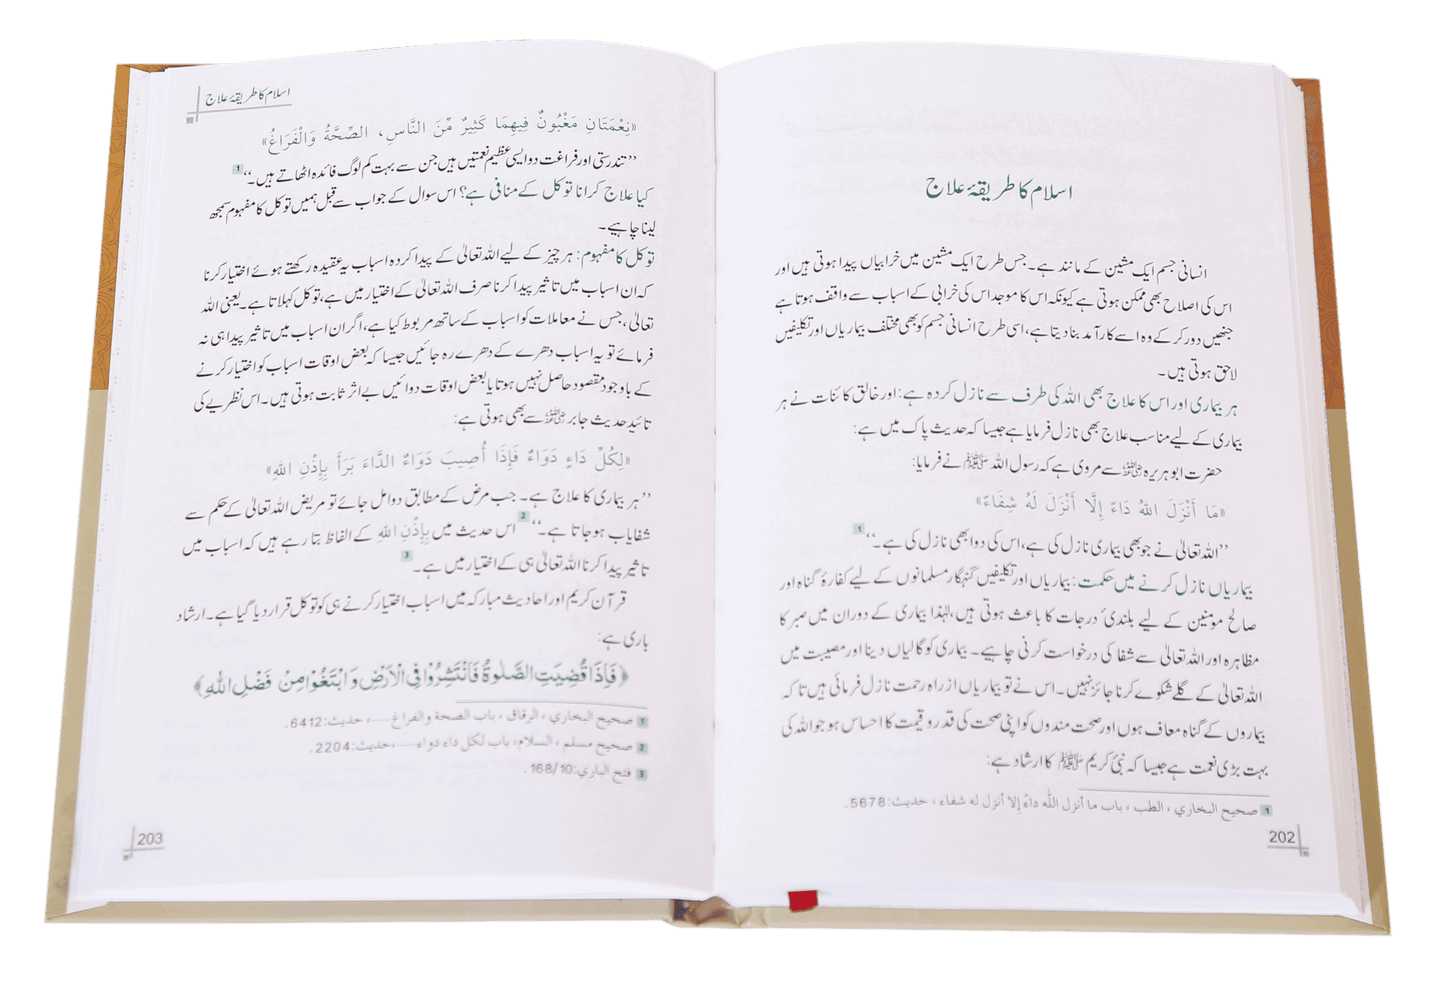 اسلام کا طریقۂ علاج
انسانی جسم ایک مشین کے مانند ہے۔ جس طرح ایک مشین میں خرابیاں پیدا ہوتی ہیں اور
اس کی اصلاح بھی ممکن ہوتی ہے کیونکہ اس کا موجد اس کی خرابی کے اسباب سے واقف ہوتا ہے
جنھیں دور کر کے وہ اسے کارآمد بنا دیتا ہے، اسی طرح انسانی جسم کو بھی مختلف بیماریاں اور تکلیفیں
لاحق ہوتی ہیں۔
ہر بیماری اور اس کا علاج بھی اللہ کی طرف سے نازل کردہ ہے: اور خالق کائنات نے ہر
بیماری کے لیے مناسب علاج بھی نازل فرمایا ہے جیسا کہ حدیث پاک میں ہے:
حضرت ابو ہریرہ ﷜ سے مروی ہے کہ رسول اللہ ﷺ نے فرمایا:
«مَا أَنْزَلَ اللهُ دَاءً إِلَّا أَنْزَلَ لَهُ شِفَاءً»
”اللہ تعالیٰ نے جو بھی بیماری نازل کی ہے، اس کی دوا بھی نازل کی ہے۔“ 1
بیماریاں نازل کرنے میں حکمت: بیماریاں اور تکلیفیں گنہگار مسلمانوں کے لیے کفارۂ گناہ اور
صالح مومنین کے لیے بلندئ درجات کا باعث ہوتی ہیں، لہٰذا بیماری کے دوران میں صبر کا
مظاہرہ اور اللہ تعالیٰ سے شفا کی درخواست کرنی چاہیے۔ بیماری کو گالیاں دینا اور مصیبت میں
اللہ تعالیٰ کے گلے شکوے کرنا جائز نہیں۔ اس نے تو بیماریاں از راہ رحمت نازل فرمائی ہیں تا کہ
بیماروں کے گناہ معاف ہوں اور صحت مندوں کو اپنی صحت کی قدر و قیمت کا احساس ہو جو اللہ کی
بہت بڑی نعمت ہے جیسا کہ نبیٔ کریم ﷺ کا ارشاد ہے:
1 صحيح البخاري، الطب، باب ما أنزل الله داءً إلا أنزل له شفاء، حديث: 5678.
202
اسلام کا طریقۂ علاج
«نِعْمَتَانِ مَغْبُونٌ فِيهِمَا كَثِيرٌ مِّنَ النَّاسِ، الصِّحَّةُ وَالْفَرَاغُ»
”تندرستی اور فراغت دو ایسی عظیم نعمتیں ہیں جن سے بہت کم لوگ فائدہ اٹھاتے ہیں۔“ 1
کیا علاج کرانا توکل کے منافی ہے؟ اس سوال کے جواب سے قبل ہمیں توکل کا مفہوم سمجھ
لینا چاہیے۔
توکل کا مفہوم: ہر چیز کے لیے اللہ تعالیٰ کے پیدا کردہ اسباب یہ عقیدہ رکھتے ہوئے اختیار کرنا
کہ ان اسباب میں تاثیر پیدا کرنا صرف اللہ تعالیٰ کے اختیار میں ہے، توکل کہلاتا ہے۔ یعنی اللہ
تعالیٰ، جس نے معاملات کو اسباب کے ساتھ مربوط کیا ہے، اگر ان اسباب میں تاثیر پیدا ہی نہ
فرمائے تو یہ اسباب دھرے کے دھرے رہ جائیں جیسا کہ بعض اوقات اسباب کو اختیار کرنے
کے باوجود مقصود حاصل نہیں ہوتا یا بعض اوقات دوائیں بے اثر ثابت ہوتی ہیں۔ اس نظریے کی
تائید حدیث جابر ﷜ سے بھی ہوتی ہے:
«لِكُلِّ دَاءٍ دَوَاءٌ فَإِذَا أُصِيبَ دَوَاءُ الدَّاءَ بَرَأَ بِإِذْنِ اللهِ»
”ہر بیماری کا علاج ہے۔ جب مرض کے مطابق دوا مل جائے تو مریض اللہ تعالیٰ کے حکم سے
شفایاب ہو جاتا ہے۔“ 2 اس حدیث میں بِإِذْنِ اللهِ کے الفاظ بتا رہے ہیں کہ اسباب میں
تاثیر پیدا کرنا اللہ تعالیٰ ہی کے اختیار میں ہے۔ 3
قرآن کریم اور احادیث مبارکہ میں اسباب اختیار کرنے ہی کو توکل قرار دیا گیا ہے۔ ارشاد
باری ہے:
﴿فَاِذَا قُضِيَتِ الصَّلٰوةُ فَانْتَشِرُوْا فِى الْاَرْضِ وَابْتَغُوْا مِنْ فَضْلِ اللّٰهِ﴾
1 صحيح البخاري، الرقاق، باب الصحة والفراغ......، حديث: 6412.
2 صحيح مسلم، السلام، باب لكل داء دواء......، حديث: 2204.
3 فتح الباري: 168/10.
203